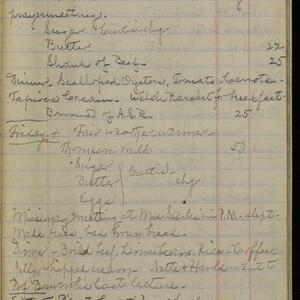 prayer meeting.
Sugar Curtis chg
Butter 22
Shank of Beef 25
Dinner - Scalloped Oysters, Tomato - Carrots -
Tapioca Cream. - Welsh Rarebit for breakfast -
Borrowed of A.S.R. 25
Friday 4 Fair weather warmer -
Thompson milk 50
Sugar
Butter } Curtis chg
Eggs
Missionary Meeting at Mrs. in P.M. - slept -
Made rice, bread.
Dinner - Boiled beef, Lima beans, Rice - Coffee
Jelly whipped cream - & Harold went to
Prof last lecture.